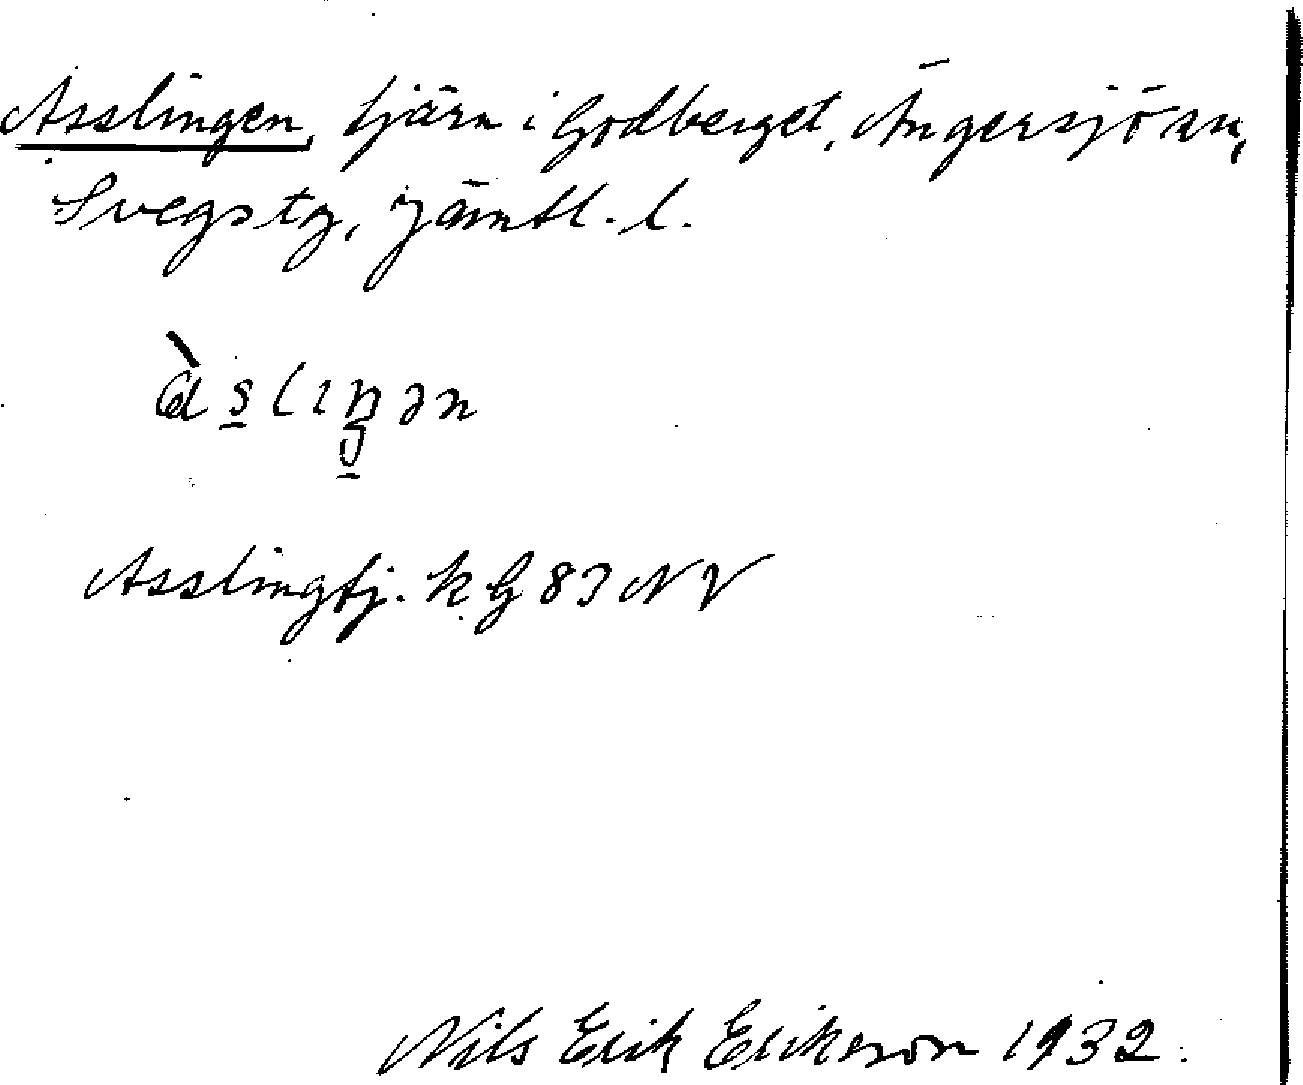 Asslingen, tjärn i Godberget, Ängersjö sn,
Svegs tg, Jämtl. l.
àslıŋən
Asslingtj. k G 83 NV
Nils Erik Erikson 1932.